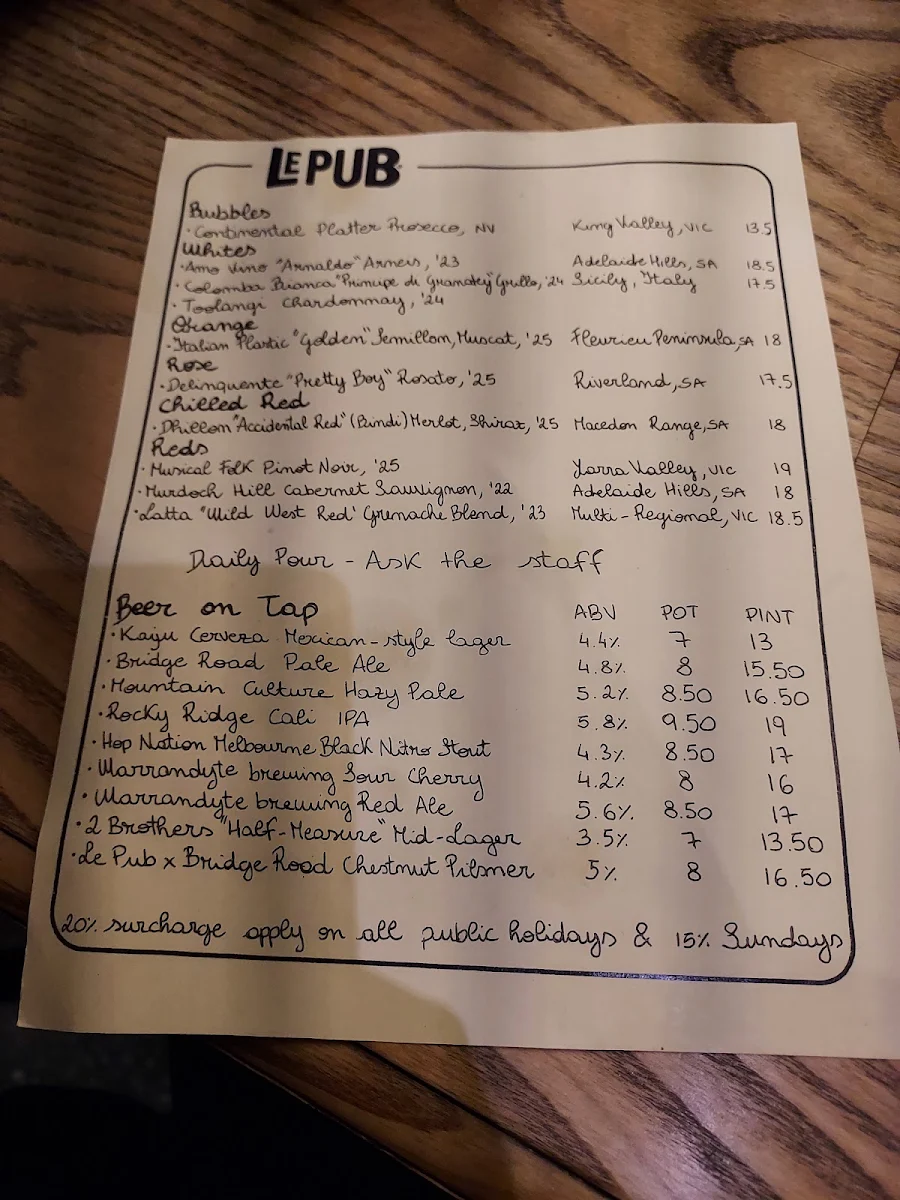 LE PUB
Bubbles
· Continental Platter Prosecco, NV King Valley, VIC 13.5
Whites
· Amo Vino "Arnaldo" Arneis, '23 Adelaide Hills, SA 18.5
· Colomba Bianca "Principe di Gramatey" Grillo, '24 Sicily, Italy 17.5
· Toolangi Chardonnay, '24
Orange
· Italian Plastic "Golden" Semillon, Muscat, '25 Fleurieu Peninsula, SA 18
Rose
· Delinquente "Pretty Boy" Rosato, '25 Riverland, SA 17.5
Chilled Red
· Dhillon "Accidental Red" (Bindi) Merlot, Shiraz, '25 Macedon Range, SA 18
Reds
· Musical Folk Pinot Noir, '25 Yarra Valley, VIC 19
· Murdoch Hill Cabernet Sauvignon, '22 Adelaide Hills, SA 18
· Latta "Wild West Red' Grenache Blend, '23 Multi-Regional, VIC 18.5
Daily Pour - Ask the staff
Beer on Tap ABV POT PINT
· Kaiju Cerveza Mexican-style lager 4.4% 7 13
· Bridge Road Pale Ale 4.8% 8 15.50
· Mountain Culture Hazy Pale 5.2% 8.50 16.50
· Rocky Ridge Cali IPA 5.8% 9.50 19
· Hop Nation Melbourne Black Nitro Stout 4.3% 8.50 17
· Warrandyte brewing Sour Cherry 4.2% 8 16
· Warrandyte brewing Red Ale 5.6% 8.50 17
· 2 Brothers "Half-Measure" Mid-Lager 3.5% 7 13.50
· Le Pub x Bridge Road Chestnut Pilsner 5% 8 16.50
20% surcharge apply on all public holidays & 15% Sundays